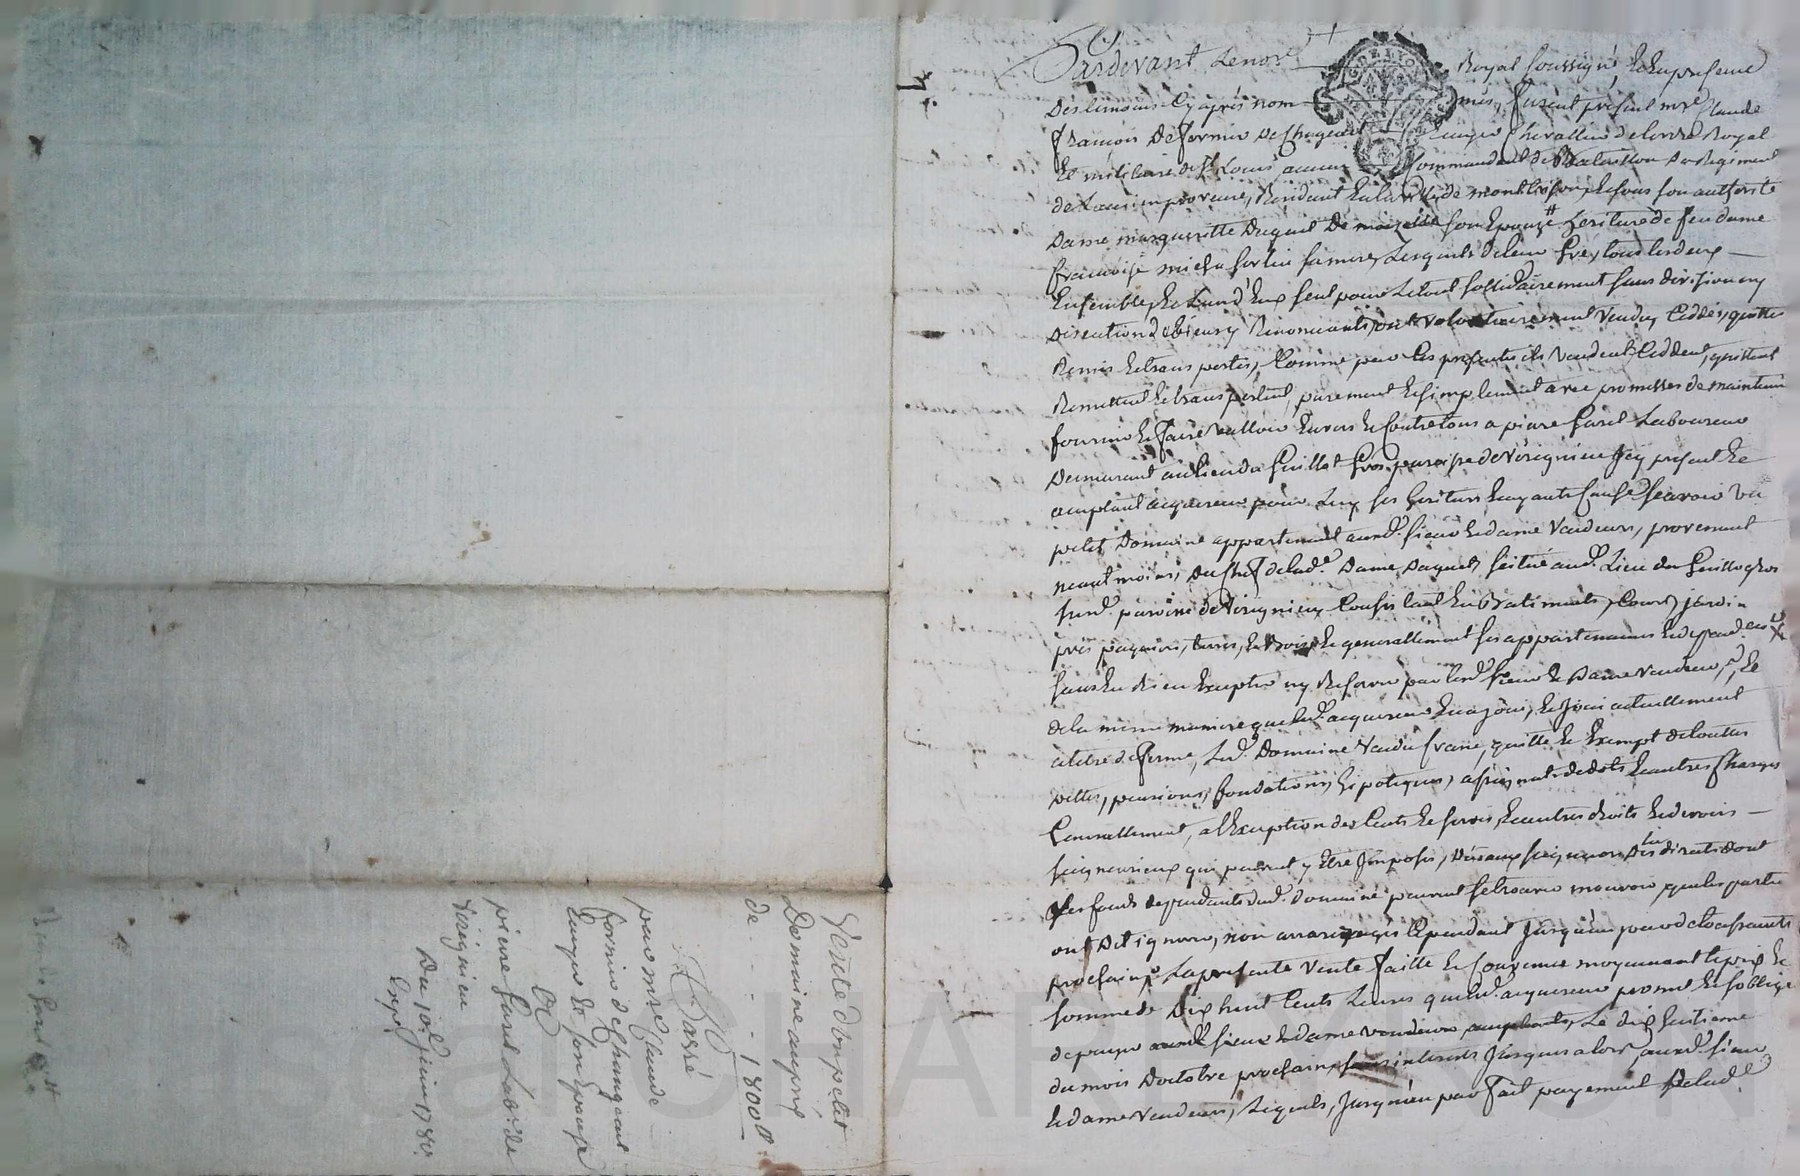 Pardevant Le no.re Royal soussigné, & En presence
Des temoins Cy après nommés, furent présent m.re Claude
françois De fornier Ecuyer Chevallier de lordre Royal
Et militaire de S.t Louis, ancien Commandant de Bataillon Du Regiment
de Resident En la ville de montbrison, & sous son authorité
Dame margueritte Duguet son Epouze heritiere de feu dame
françoise sa mere, Lesquels de leur gre, tous les deux
Ensembles, & L'un d'Eux seul pour Le tout sollidairement sans division ny
Discution de biens y Renonceants, ont volontairement Vendu, Ceddés, quittés
Remis & transportés, Comme par Ces presentes ils Vendent, Ceddent, quittent
Remettent & transportent, purement & simplement avec promesses de maintenir
fournir & faire valloir Envers & Contre tous a piere Garel Laboureur
Demeurant au Lieu du paroisse de Verignieu icy present &
acceptant acquereur pour Luy ses heritiers & ayants Cause, sçavoir Un
petit Domaine appartenant auxd. sieur & dame Vendeurs, provenant
neantmoins, Du Chef de lad.e Dame Duguet, scitué aud. Lieu du
susd. paroisse de Verignieu, Consistant En Batiments, Cour, jardin
prés paquiers, terres, & Bois, & generallement ses appartenances & dependances
sans En Rien Excepter ny Reserver par lesd. sieur & Dame Vendeurs, &
de la meme maniere que led. acquereur En a joui, & Joui actuellement
a titre de ferme, Led. Domaine Vendu franc, quitte & Exempt de touttes
dettes, pensions, fondations, hipoteques, assignats de dots & autres Charges
Generallement, a l'Exception des Cents & servis, & autres droits & devoirs
seigneuriaux qui peuvent y Etre Imposés, Dûs aux seigneurs directs dont
Les fonds dependants dud. domaine peuvent se trouver mouvoir, que les parties
ont Dit ignorer, non arreragés Cependant Jusqu'au jour de la toussaints
prochain; La presente Vente faitte & Convenue moyennant le prix &
somme de Dix huit Cents Livres que led. acquereur promet & s'oblige
de payer auxd. sieur & dame vendeurs acceptants, Le dix huitieme
du mois D'octobre prochain, sans interets Jusques alors, auxd. sieur
& dame Vendeurs, Lesquels, Jusqu'au parfait payement de lad.e
Vente dun petit
Domaine au prix
de - - - 1800 ₶
Passé
par m.re Claude
fornier de
Ecuyer & son Epouse
A
pierre Garel Lab.r de
Verignieu
Du juin 178
Exp.